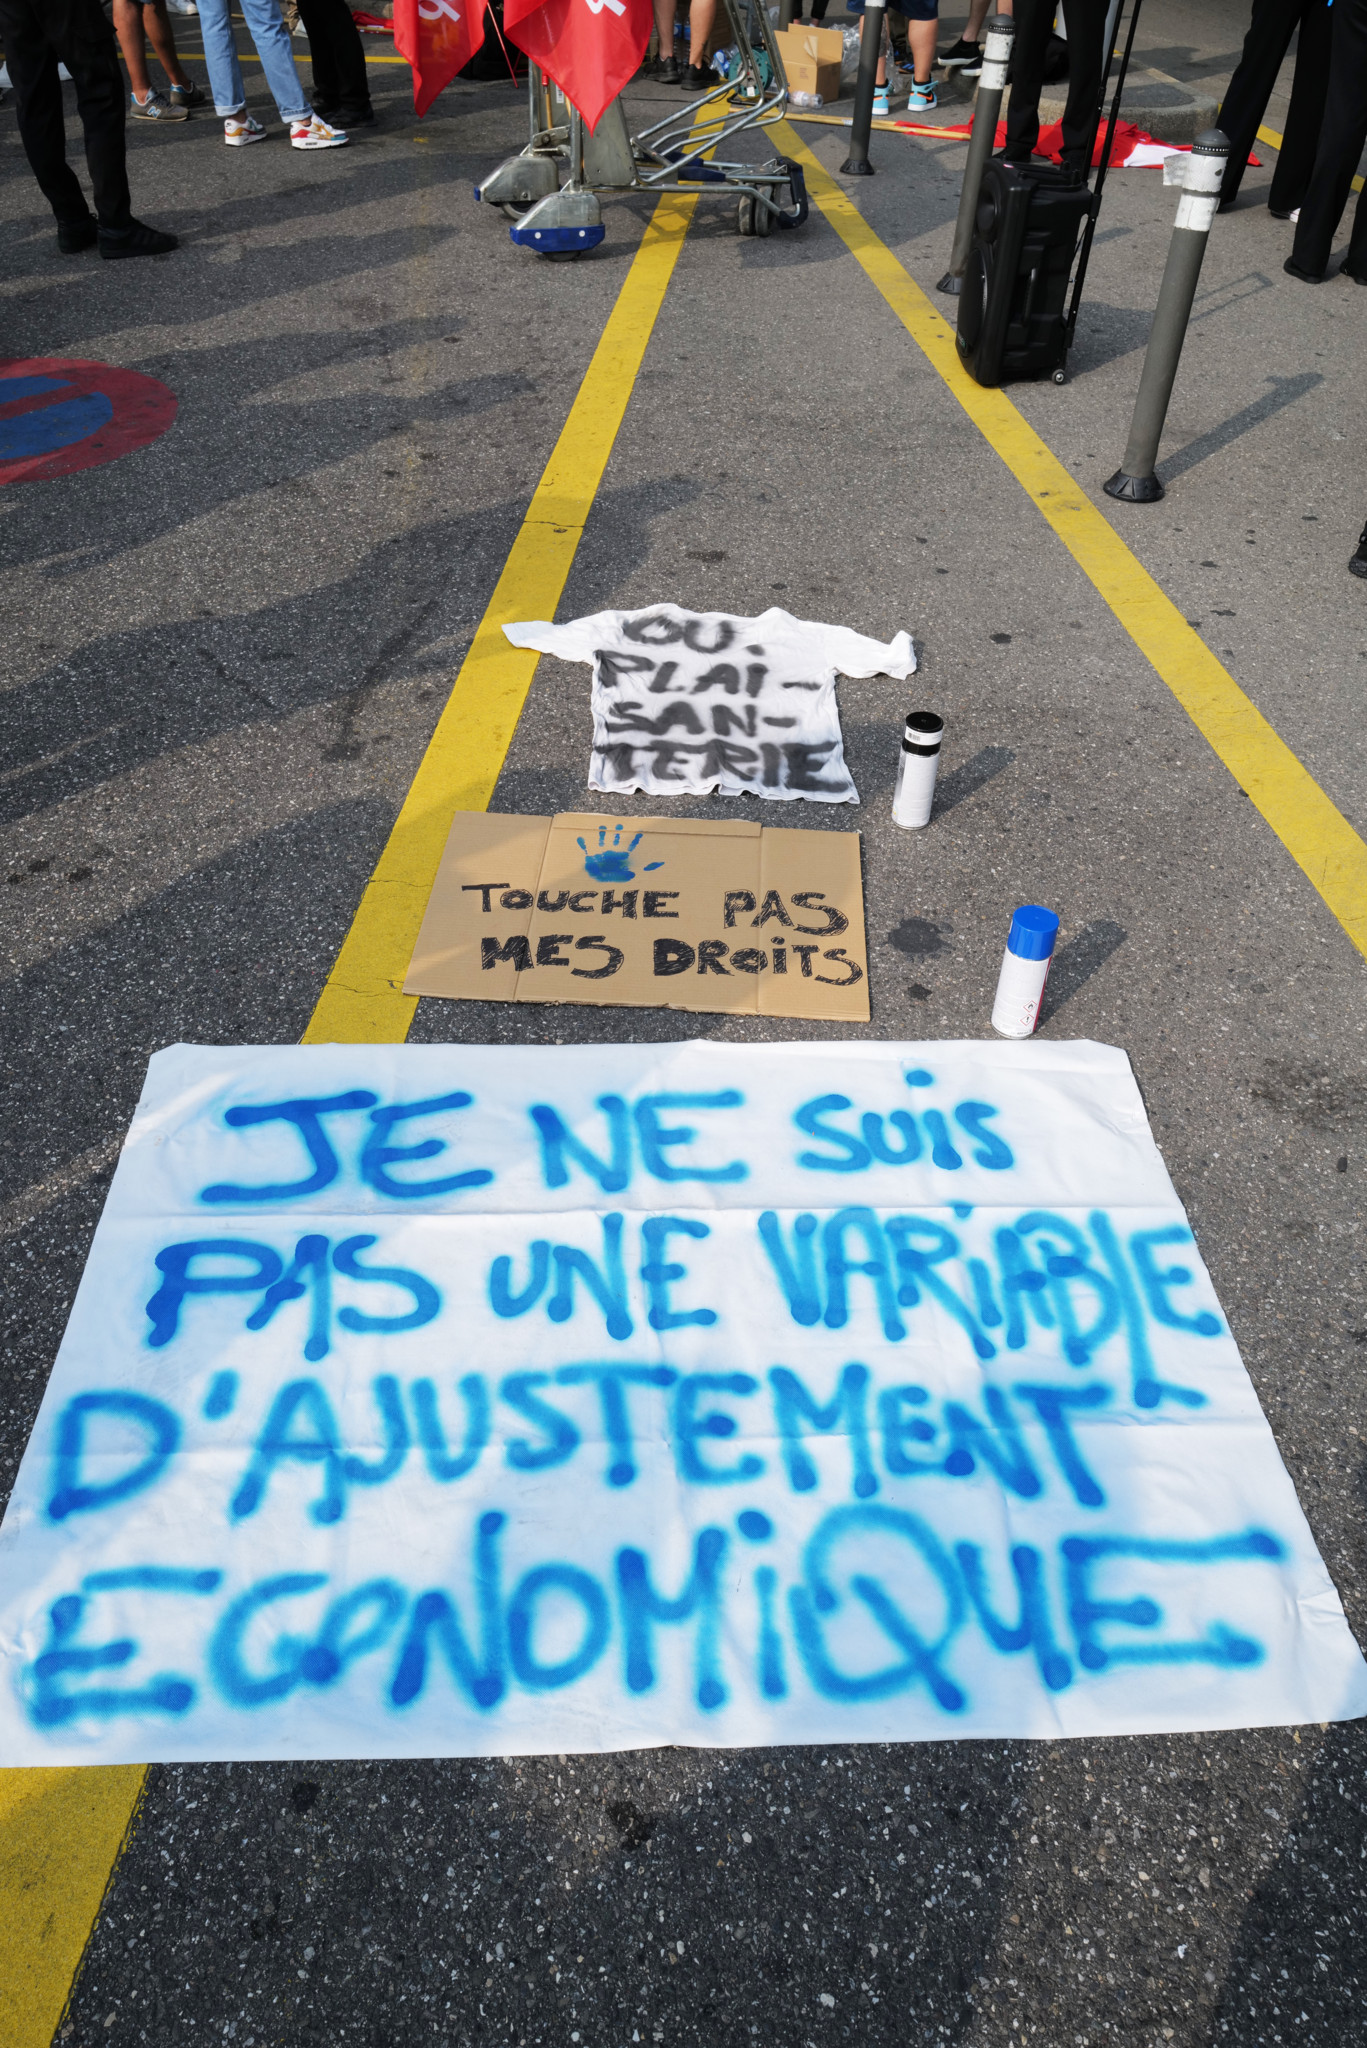 OU.
PLAi-
SAN-
TERIE
TOUCHE PAS
MES DROiTS
JE NE SUiS
PAS UNE VARiABlE
D'AJUSTEMENT
ECONOMiQUE